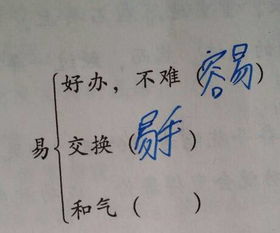 好办，不难（容易）
易 交换（易手）
和气（ ）